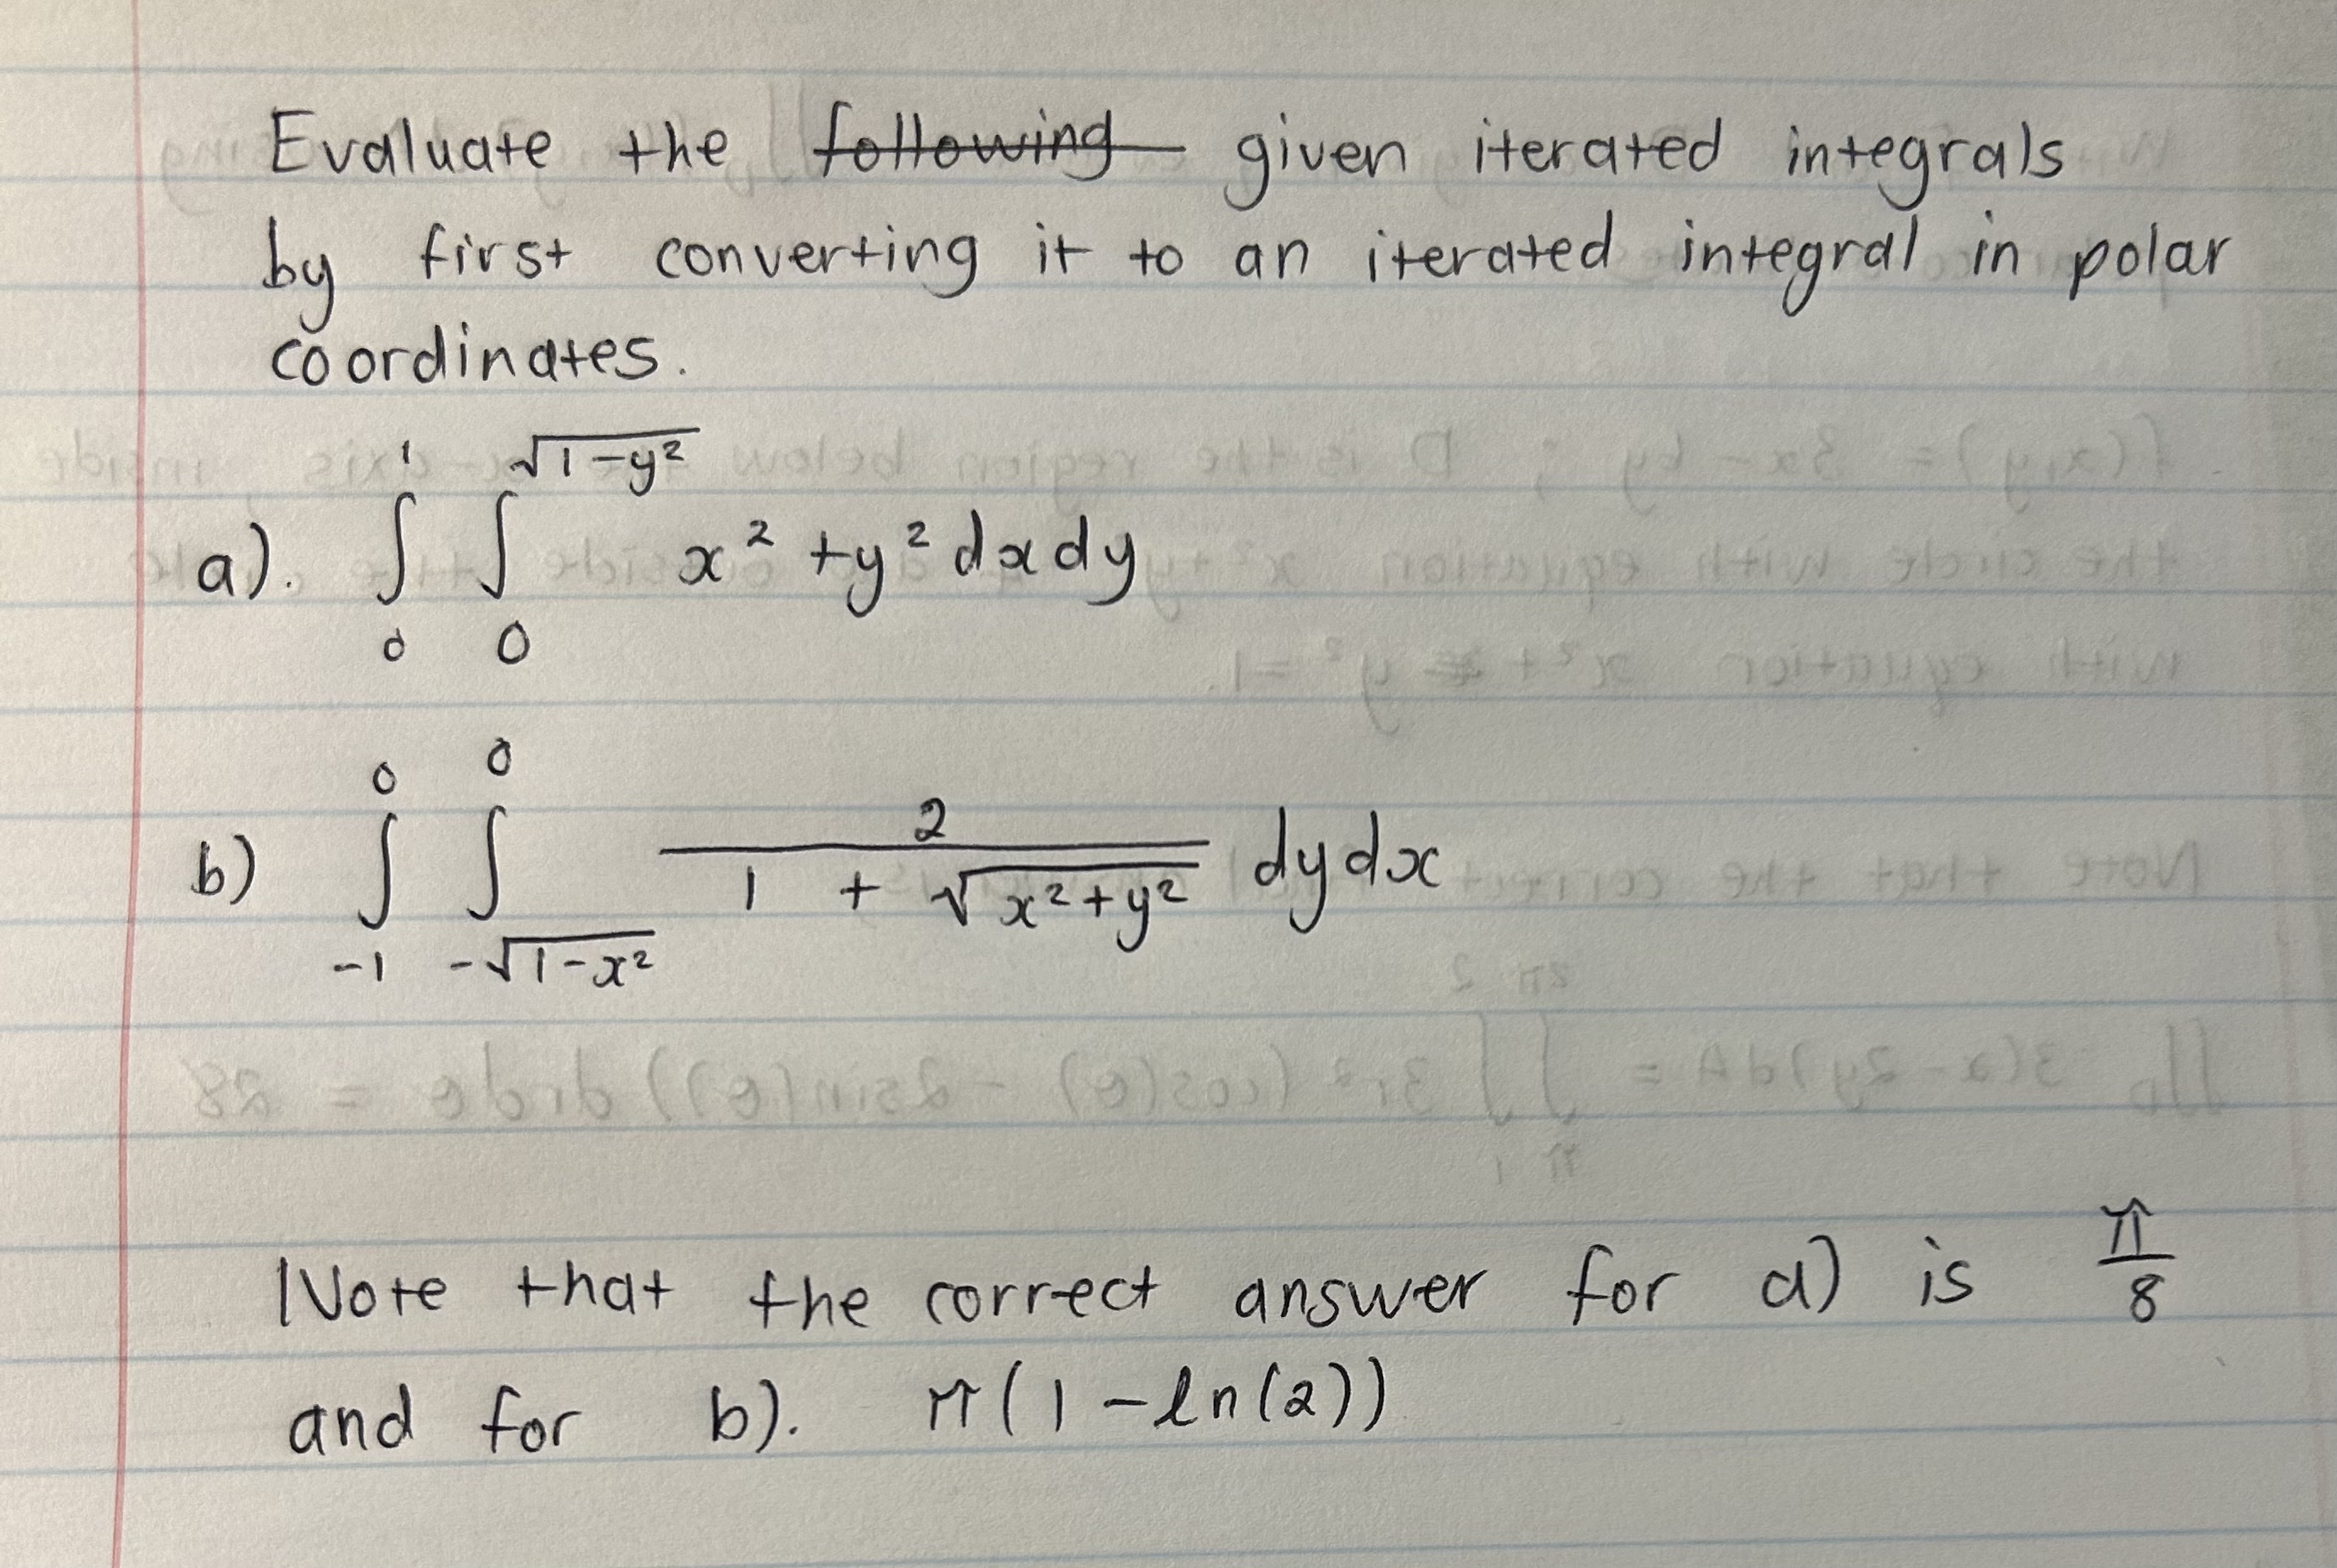 Evaluate the following given iterated integrals
by first converting it to an iterated integral in polar
coordinates.
a). ∫₀¹ ∫₀^√(1-y²) x² + y² dx dy
b) ∫₋₁⁰ ∫_{-√(1-x²)}⁰ 2 / (1 + √(x²+y²)) dy dx
Note that the correct answer for a) is π/8
and for b). π(1 - ln(2))